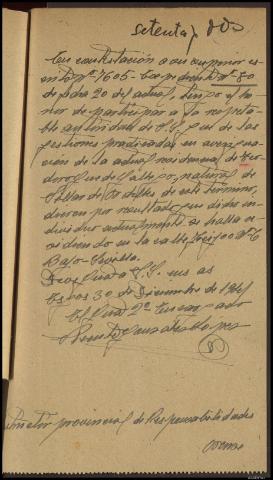 setenta y dos
En contestación a su superior es
crito nº 1605 - Expediente nº 80
de fecha 20 del actual, tengo el ho
nor de participar a la respeta
ble autoridad de V.S. que de las
gestiones practicadas en averigua
ción de la actual residencia de
natural de
de este término,
dieron por resultado, que dicho in
dividuo actualmente se halla re
sidiendo en la calle nº 6
Bajo - Sevilla.
Dios guarde a V.S. muchos años
30 de Diciembre de 1941
El 2º
Instructor provincial de Responsabilidades
Orense